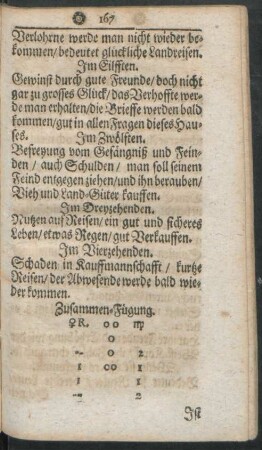 167
Verlohrne werde man nicht wieder be-
kommen/ bedeutet glückliche Landreisen.
Im Eilfften.
Gewinst durch gute Freunde/ doch nicht
gar zu grosses Glück/ das Verhoffte wer-
de man erhalten/ die Brieffe werden bald
kommen/ gut in allen Fragen dieses Hau-
ses. Im Zwölften.
Befreyung vom Gefängniß und Fein-
den / auch Schulden / man soll seinem
Feind entgegen ziehen/ und ihn berauben/
Vieh und Land-Güter kauffen.
Im Dreyzehenden.
Nutzen auf Reisen/ ein gut und sicheres
Leben/ etwas Regen/ gut Verkauffen.
Im Vierzehenden.
Schaden in Kauffmannschafft / kurtze
Reisen/ der Abwesende werde bald wie-
der kommen.
Zusammen-Fügung.
♀ R. o o ♍
o
-- o 2
1 oo 1
1 1
-- 2
Ist